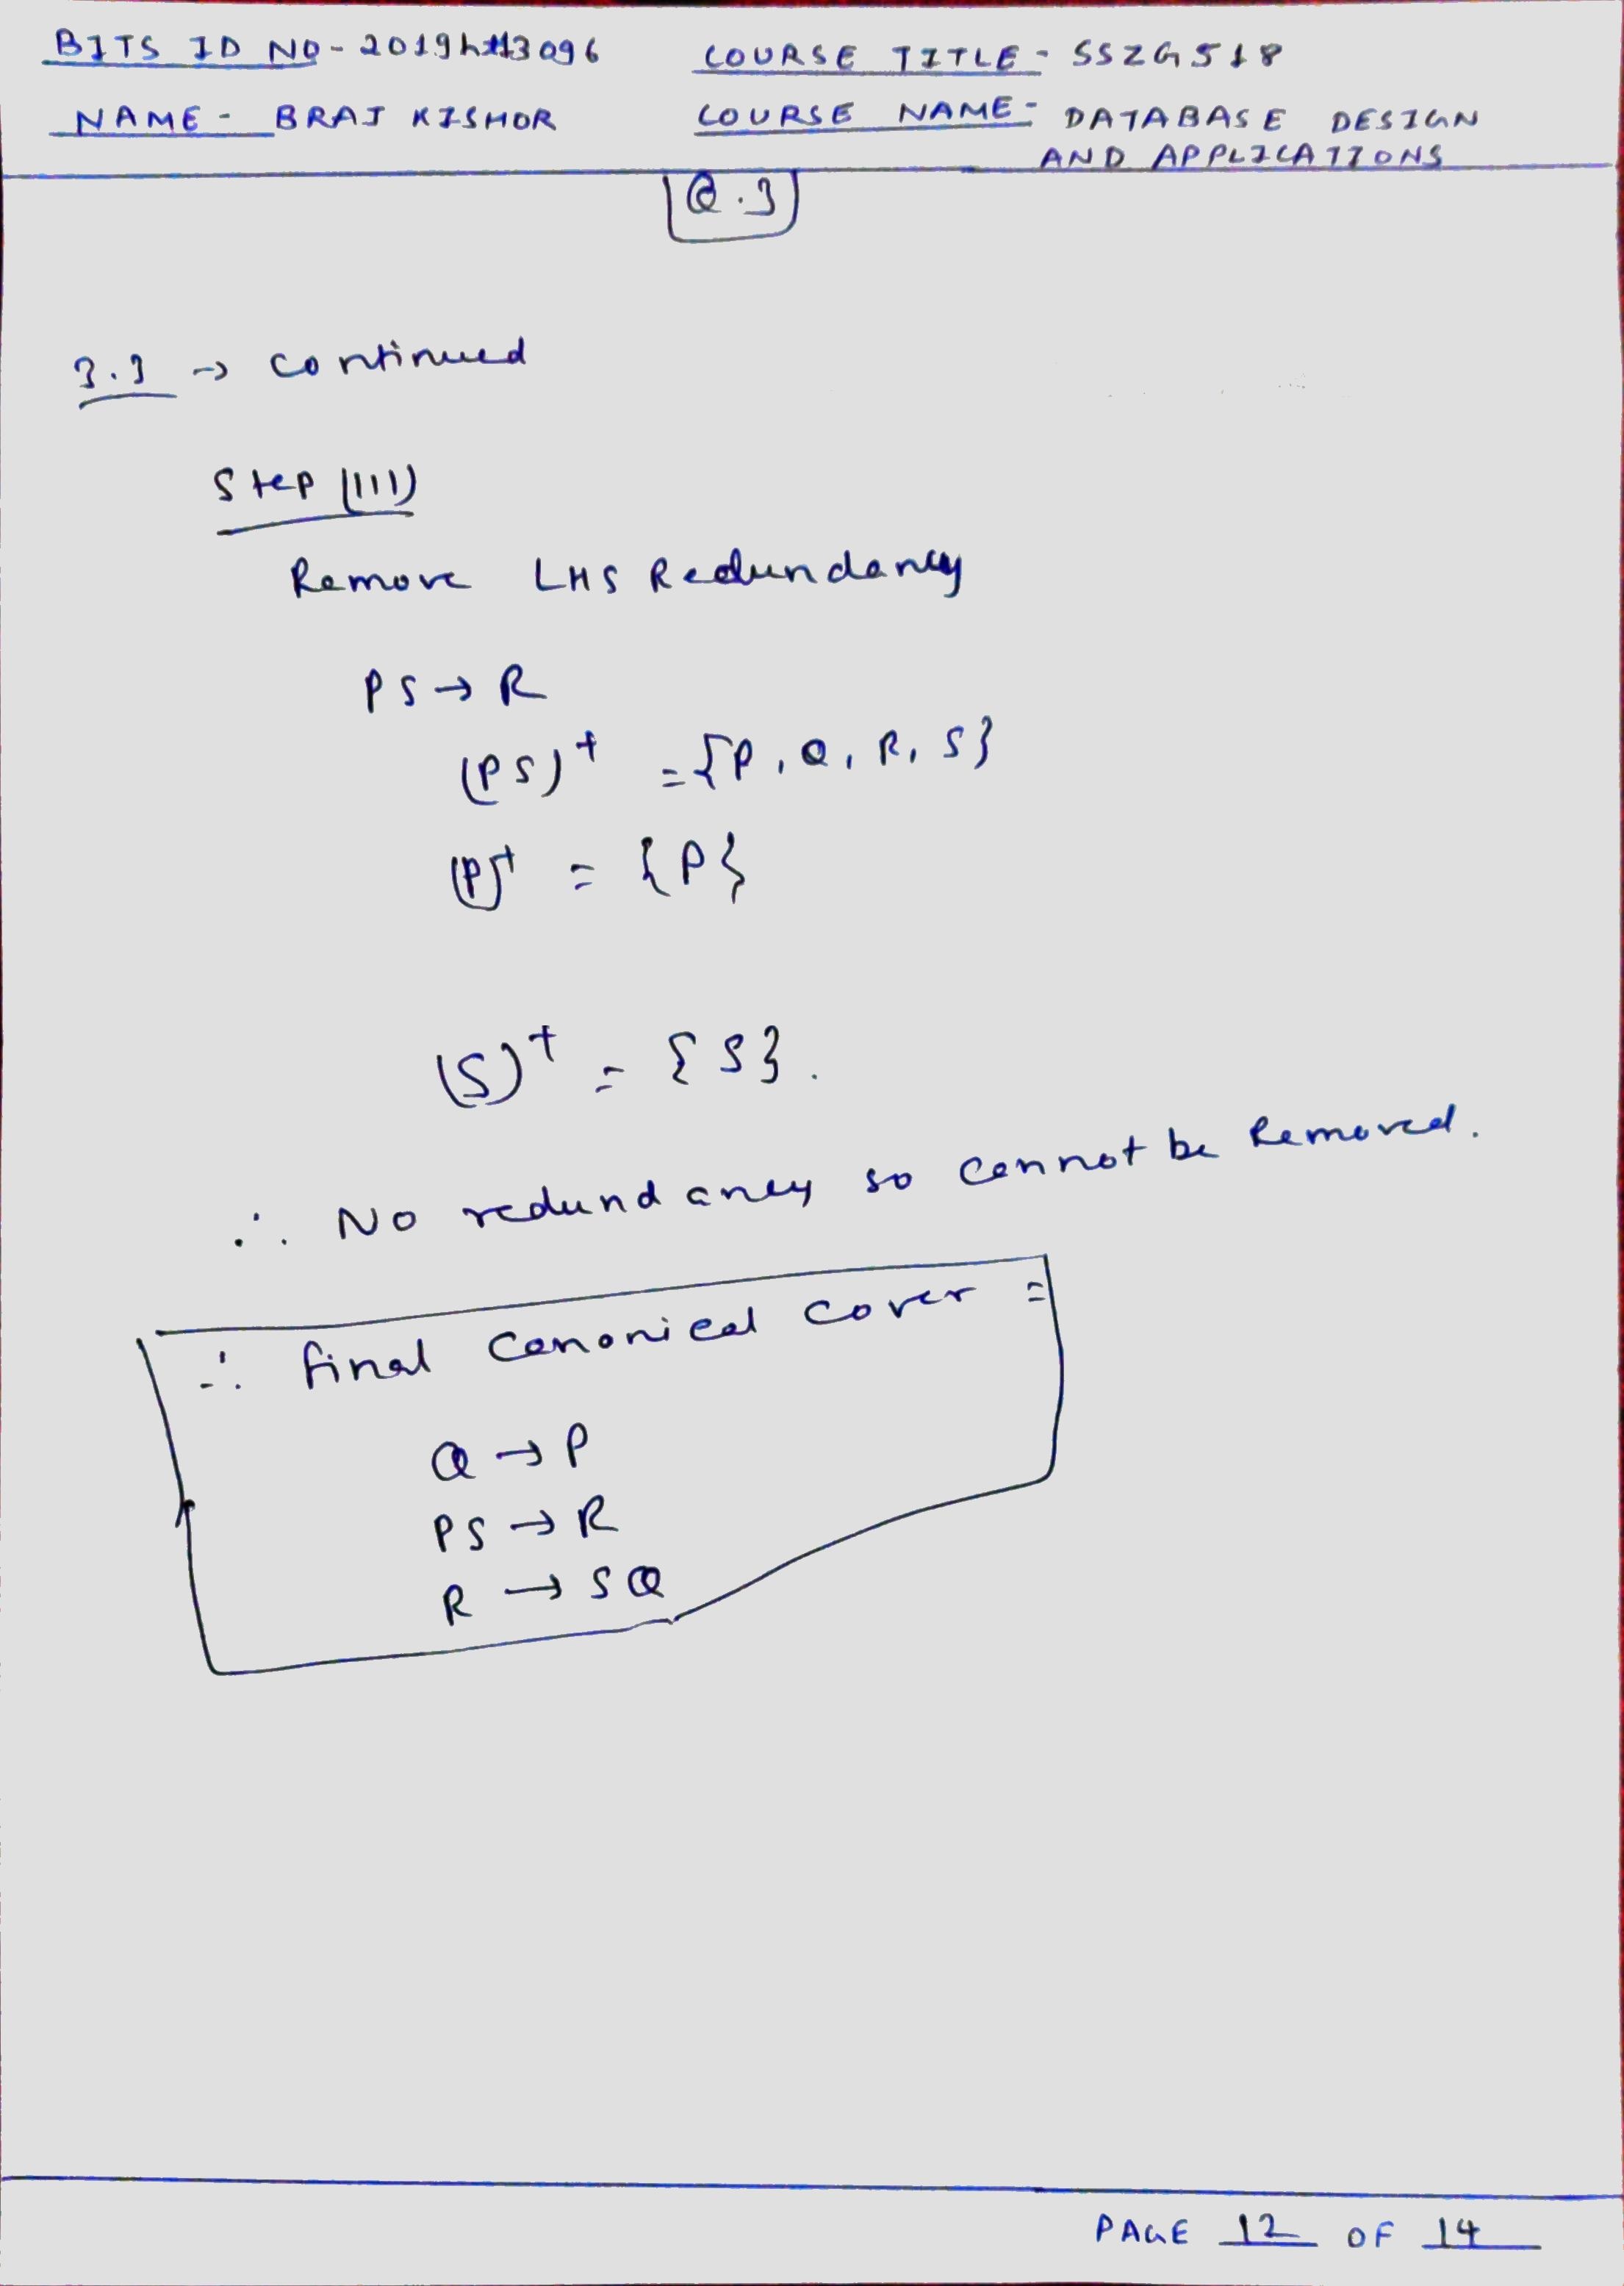 BITS ID NO - 2019ht13096 COURSE TITLE - SSZG518
NAME - BRAJ KISHOR COURSE NAME - DATABASE DESIGN
AND APPLICATIONS
Q.3
3.3 → continued
Step (III)
Remove LHS Redundancy
PS → R
(PS)⁺ = {P, Q, R, S}
(P)⁺ = {P}
(S)⁺ = {S}.
∴ No redundancy so cannot be Removed.
∴ final canonical cover =
Q → P
PS → R
R → SQ
PAGE 12 OF 14